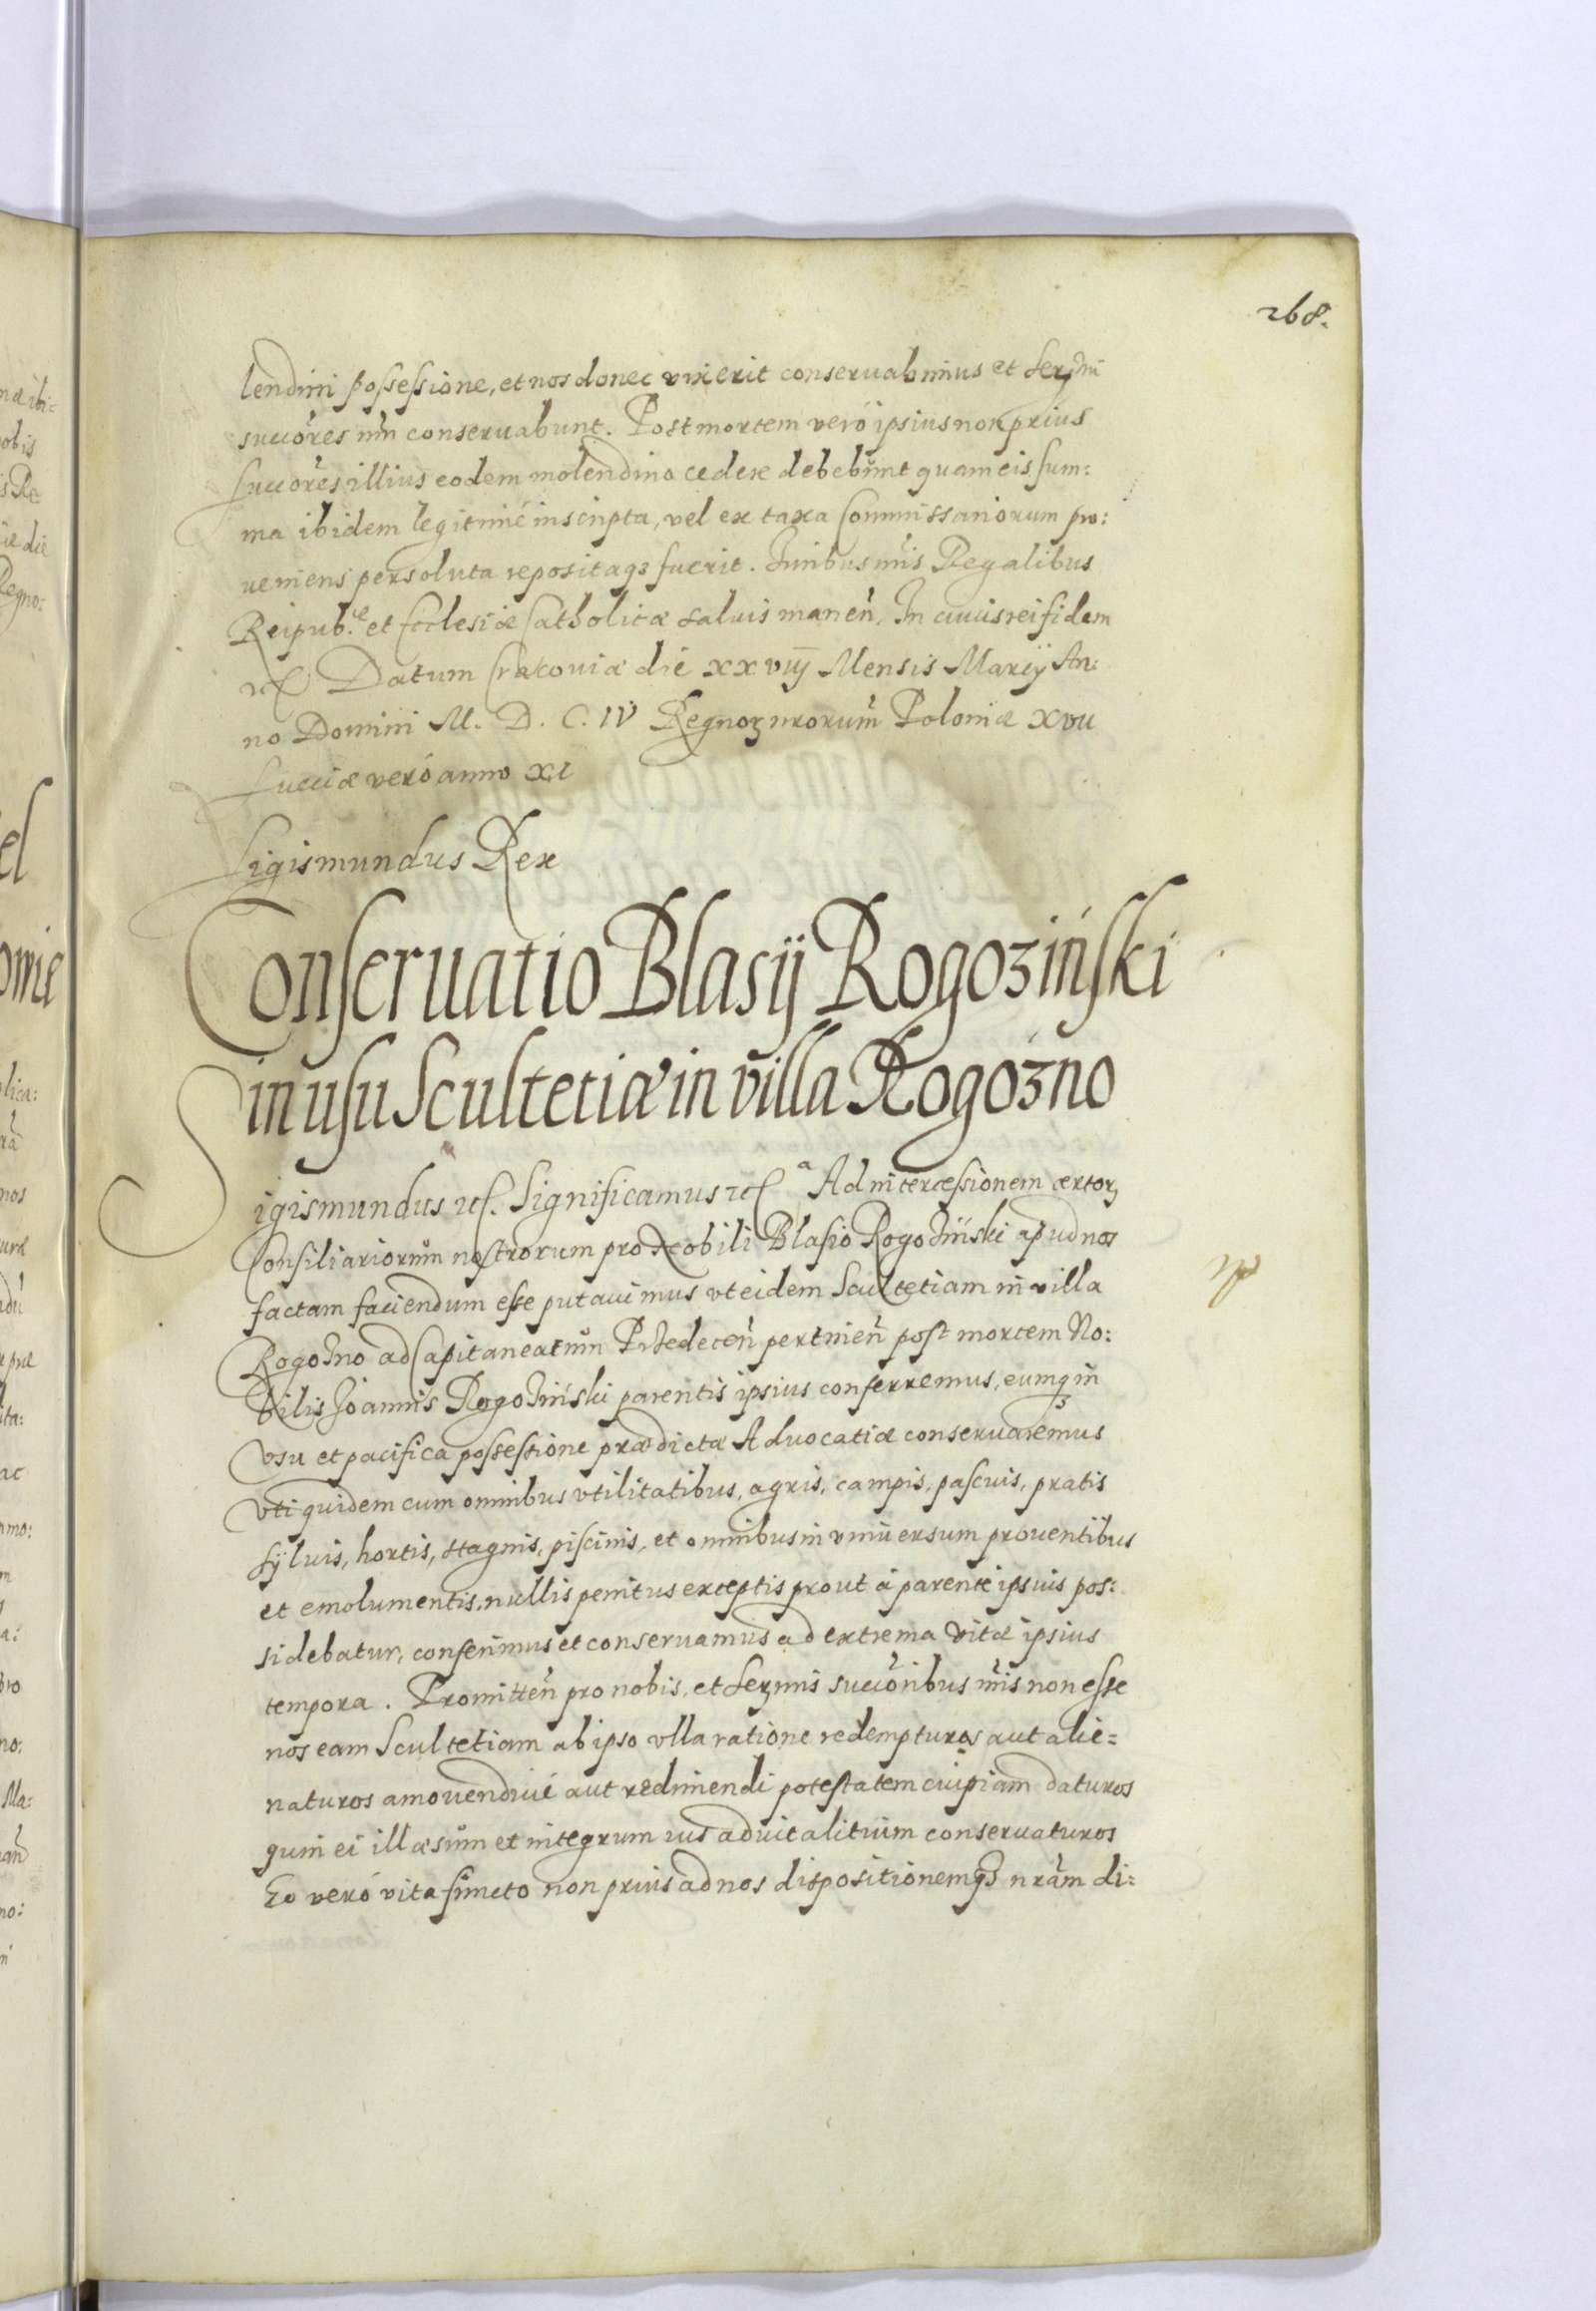 268.
lendini possessione, et nos donec vixerit conseruabimus et Serȝmi
succores nri conseruabunt. Post mortem veró ipsius non prius
succores illius eodem molendino cedere debebunt quam eis sum:
ma ibidem legitimé inscripta, vel ex taxa Commissariorum pro:
ueniens persoluta repositaqȝ fuerit. Iuribus nris Regalibus
Reipub.ce et Ecclesiæ Catholicæ saluis manen. In cuius rei fidem
etc Datum Cracouiæ die xxviij Mensis Marcij An:
no Domini M. D. C. IV Regnoȝ nrorum Poloniæ xvii
Sueciæ veró anno xi
Sigismundus Rex
Conseruatio Blasij Rogoziński
in usu Scultetiæ in villa Rogózno
Sigismundus etc. Significamus etc a Ad intercessionem certoȝ
Consiliariorum nostrorum pro Nobili Blasio Rogoziński apud nos
factam faciendum esse putauimus vt eidem Scultetiam in villa
Rogozno ad Capitaneatum Przedecen pertinen post mortem No:
bilis Joannis Rogoziński parentis ipsius conferremus, eumqȝ in
vsu et pacifica possessione prædictæ Aduocatiæ conseruaremus
vti quidem cum omnibus vtilitatibus, agris, campis, pascuis, pratis
syluis, hortis, stagnis, piscinis, et omnibus in vniuersum prouentibus
et emolumentis, nullis penitus exceptis prout á parente ipsius pos:
sidebatur, conferimus et conseruamus ad extrema vitæ ipsius
tempora. Promitten pro nobis, et Serȝmis succoribus nris non esse
nos eam Scultetiam ab ipso vlla ratione redempturos aut alie=
naturos amouendiué aut redimendi potestatem cuipiam daturos
quin ei illæsum et integrum ius aduitalitium conseruaturos
Eo veró vita functo non prius ad nos dispositionemqȝ nram di: